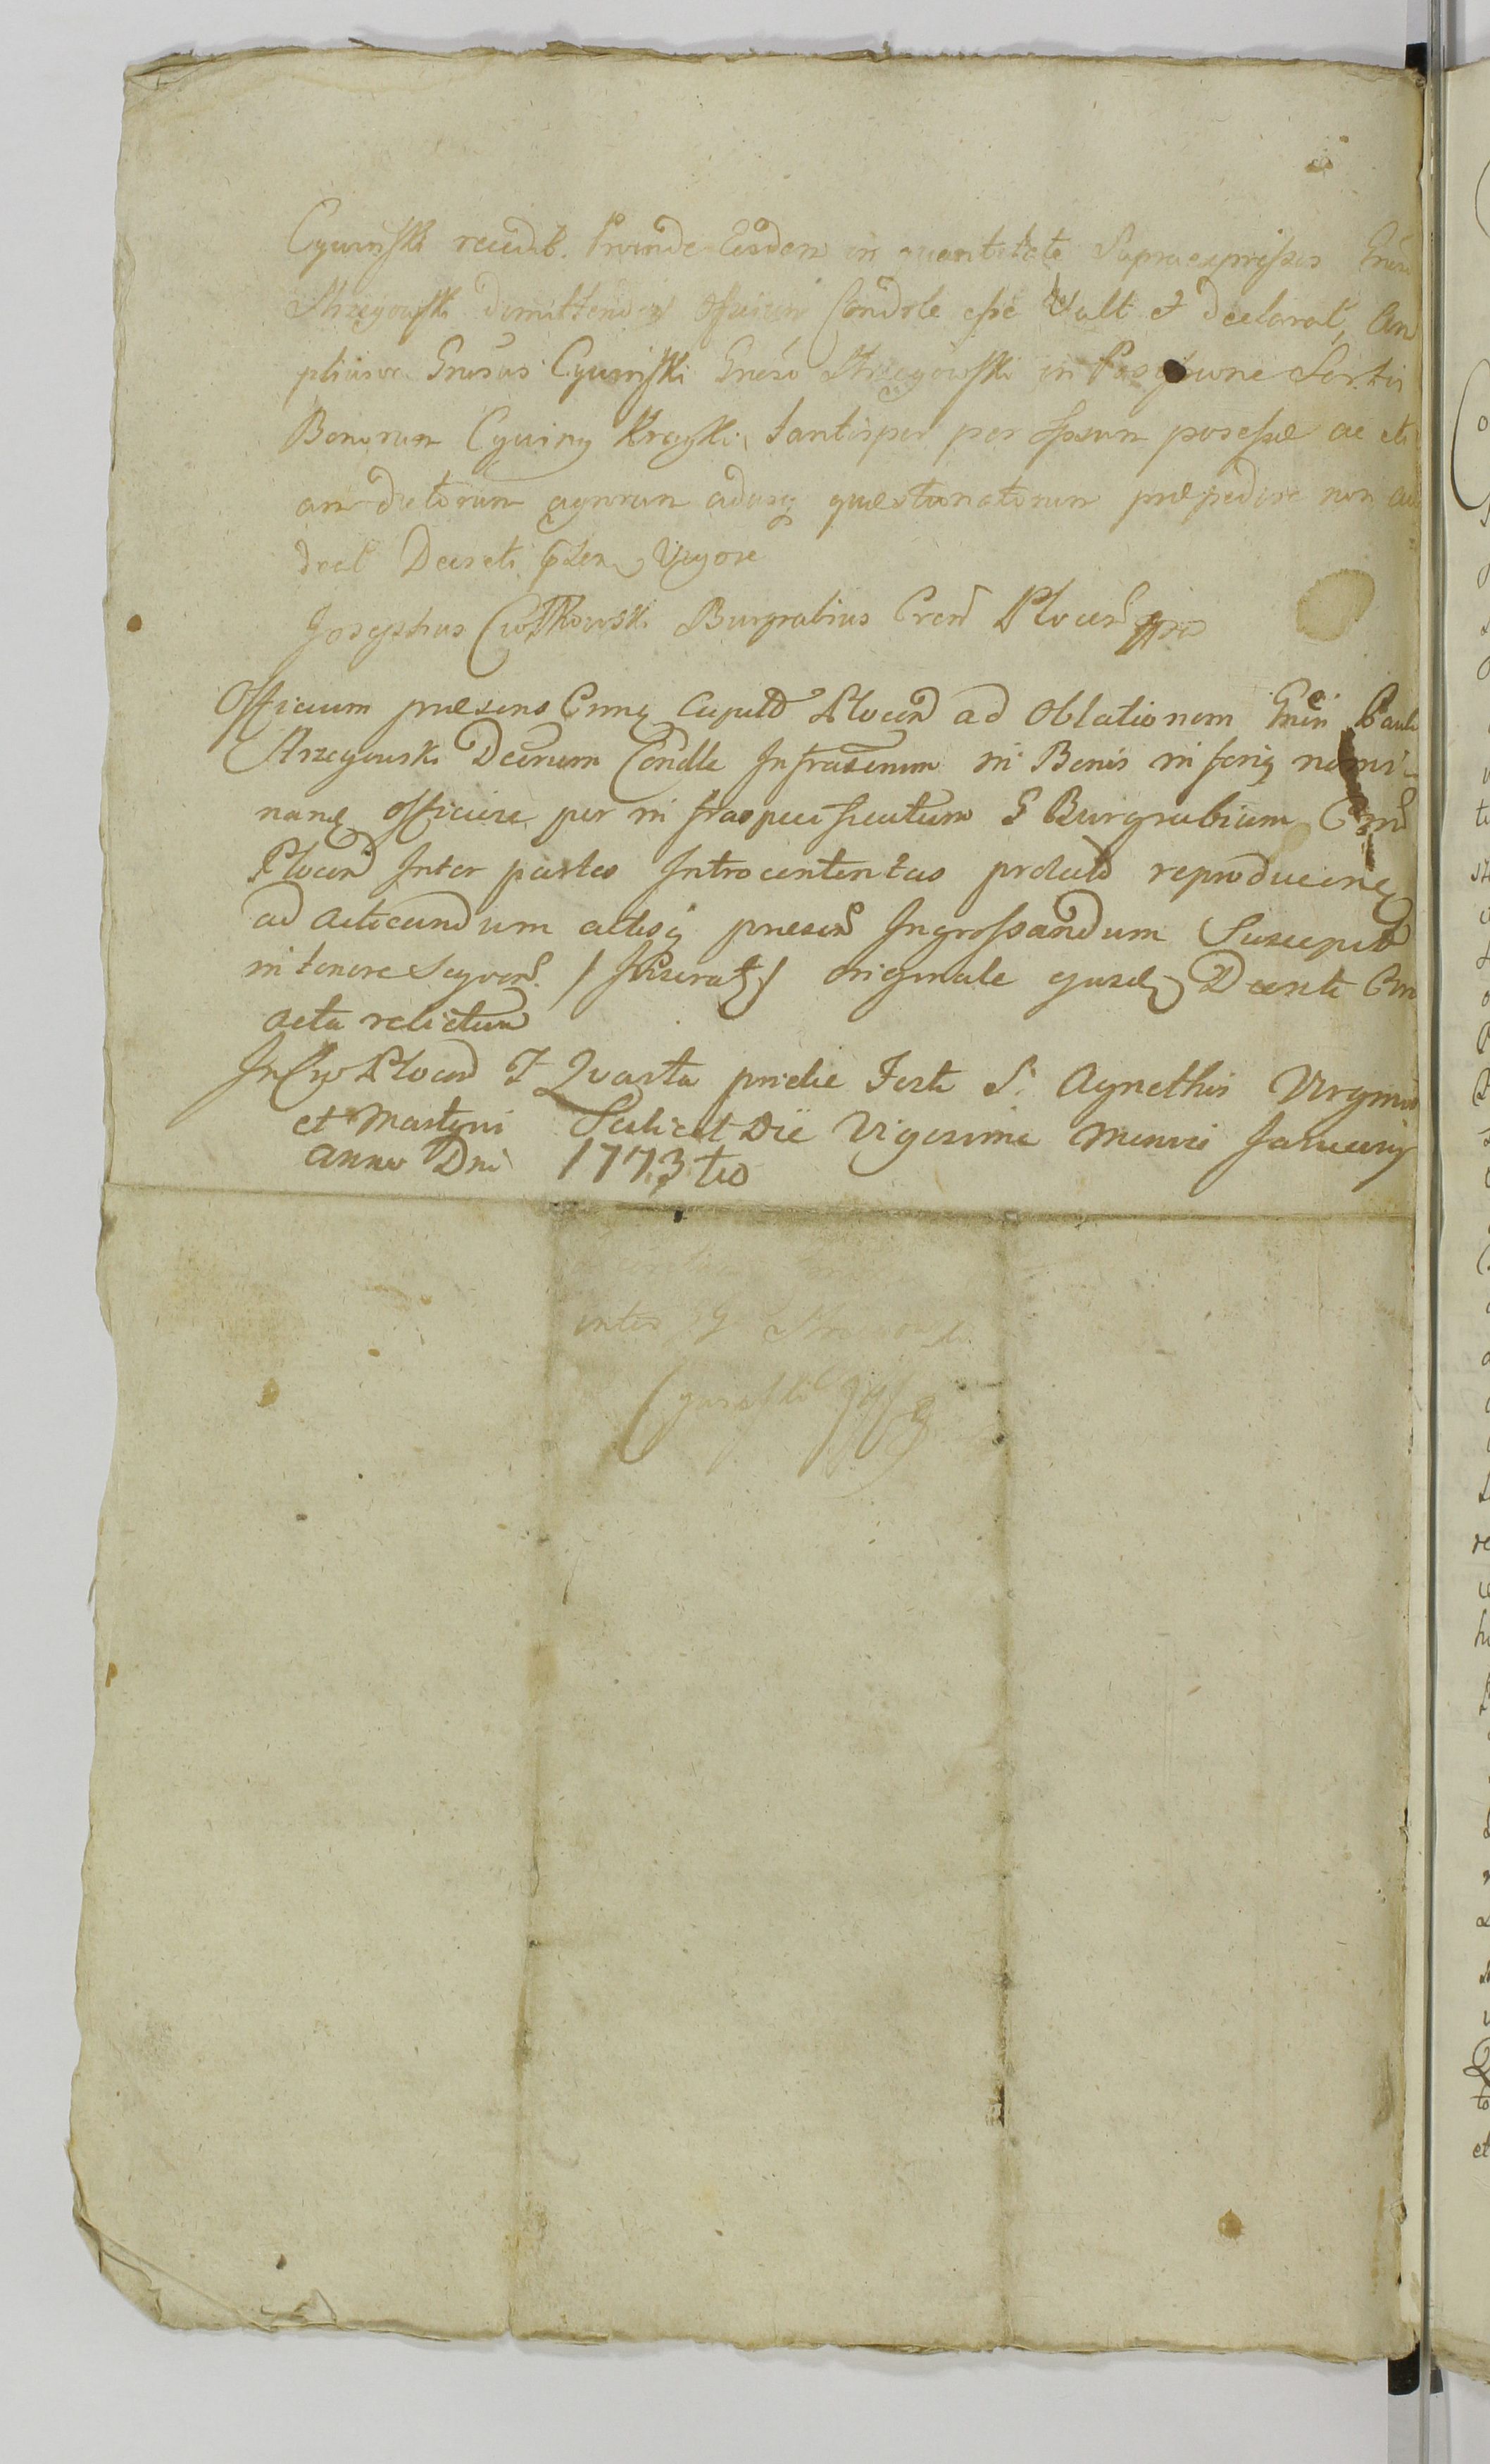 Cywinski recedit. Proinde Eosdem in quantitate Supraexpressos Gnëso
Strzegowski dimittendos Officium Condole esse Vult et declarat, Am
pliusve Gnësus Cywinski Gnëso Strzegowski in Possessione Sortis
Bonorum Cywiny Krayki tantisper per Ipsum possessae ac eti
am dictorum agrorum adusq quaestionatorum praepedire non au
deat Decreti psen Vigore
Josephus Burgrabius Cren Plocen mp
Officium praesens Cnny Caputo Plocen ad Oblationem Gnën Pauli
Strzegowski Decrum Condle Infrascnum in Bonis inferiq nomi-
nanq officiose per infraspecificatum G Burgrabium
Plocen Inter partes Introcontentas prolatu reproducenq
ad acticandum actisq praesen Ingrossandum Suscepit
in tenore Seqven originale ejusdq Decreti Circa
acta relictum
In Plocen F Quarta pridie Festi S. Agnethis Virginis
et Martyris Scilicet Die Vigesima Mensis Januarij
Anno Dni 1773tio
inter GG Strzegowski
Cywinski